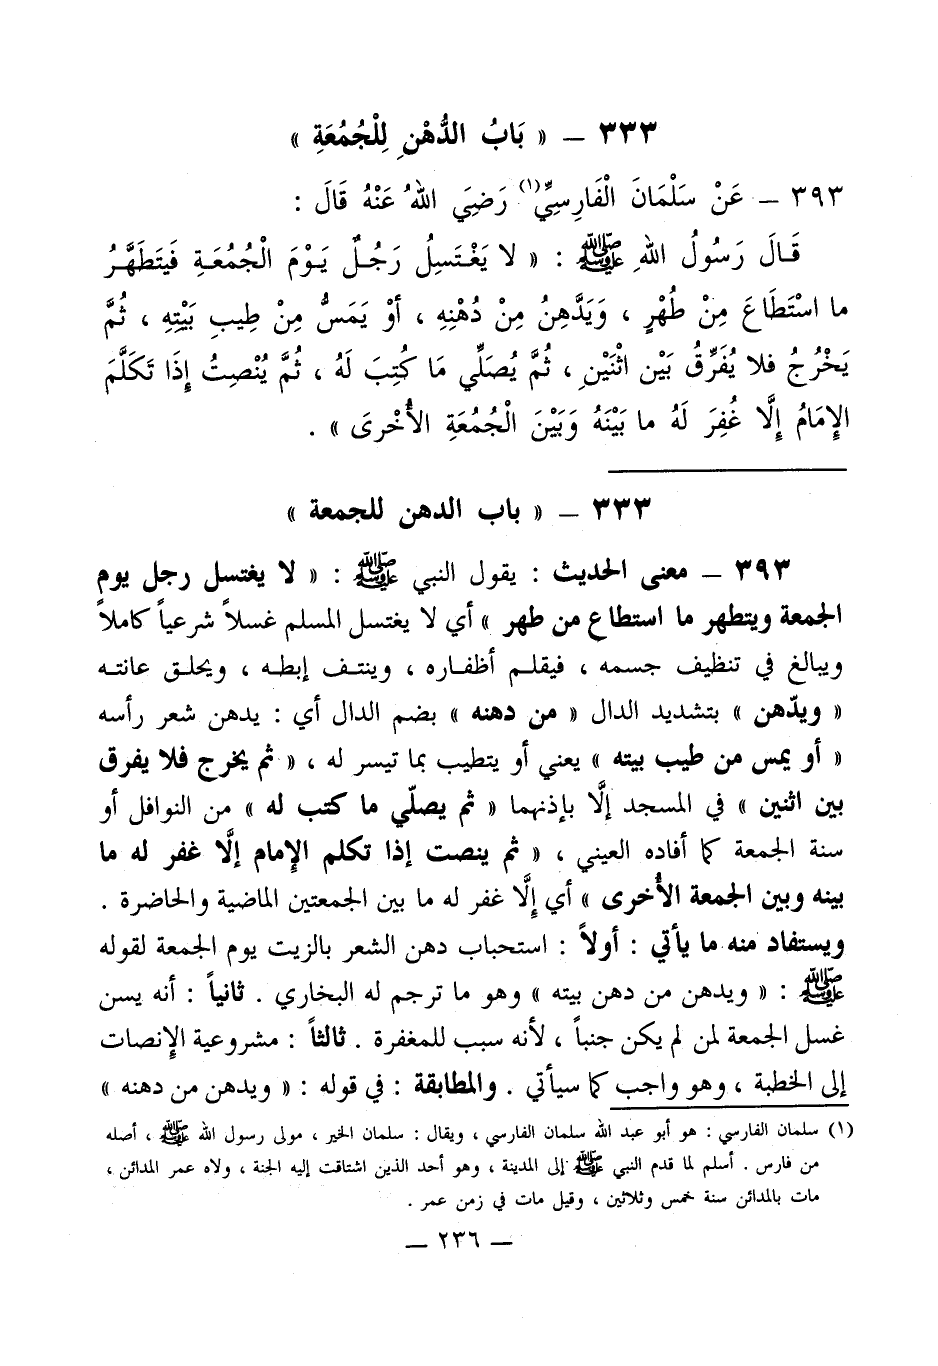 ٣٣٣ ــ « بَابُ الدُّهْنِ لِلْجُمُعَةِ »
٣٩٣ ــ عَنْ سَلْمَانَ الْفَارِسِيِّ(١) رَضِيَ اللهُ عَنْهُ قَالَ :
قَالَ رَسُولُ اللهِ ﷺ : « لا يَغْتَسِلُ رَجُلٌ يَوْمَ الْجُمُعَةِ فَيَتَطَهَّرُ
ما اسْتَطَاعَ مِنْ طُهْرٍ ، وَيَدَّهِنُ مِنْ دُهْنِهِ ، أوْ يَمَسُّ مِنْ طِيبِ بَيْتِهِ ، ثُمَّ
يَخْرُجُ فلا يُفَرِّقُ بَيْن اثْنَيْنِ ، ثُمَّ يُصَلِّي مَا كُتِبَ لَهُ ، ثُمَّ يُنْصِتُ إِذَا تَكَلَّمَ
الإِمَامُ إِلَّا غُفِرَ لَهُ ما بَيْنَهُ وَبَيْنَ الْجُمُعَةِ الأُخْرىَ » .
٣٣٣ ــ « باب الدهن للجمعة »
٣٩٣ ــ معنى الحديث : يقول النبي ﷺ : « لا يغتسل رجل يوم
الجمعة ويتطهر ما استطاع من طهر » أي لا يغتسل المسلم غسلاً شرعياً كاملاً
ويبالغ في تنظيف جسمه ، فيقلم أظفاره ، وينتف إبطه ، ويحلق عانته
« ويدّهن » بتشديد الدال « من دهنه » بضم الدال أي : يدهن شعر رأسه
« أو يمس من طيب بيته » يعني أو يتطيب بما تيسر له ، « ثم يخرج فلا يفرق
بين اثنين » في المسجد إلَّا بإذنهما « ثم يصلّي ما كتب له » من النوافل أو
سنة الجمعة كما أفاده العيني ، « ثم ينصت إذا تكلم الإمام إلَّا غفر له ما
بينه وبين الجمعة الأُخرى » أي إلَّا غفر له ما بين الجمعتين الماضية والحاضرة .
ويستفاد منه ما يأتي : أولاً : استحباب دهن الشعر بالزيت يوم الجمعة لقوله
ﷺ : « ويدهن من دهن بيته » وهو ما ترجم له البخاري . ثانياً : أنه يسن
غسل الجمعة لمن لم يكن جنباً ، لأنه سبب للمغفرة . ثالثاً : مشروعية الإنصات
إلى الخطبة ، وهو واجب كما سيأتي . والمطابقة : في قوله : « ويدهن من دهنه »
(١) سلمان الفارسي : هو أبو عبد الله سلمان الفارسي ، ويقال : سلمان الخير ، مولى رسول الله ﷺ ، أصله
من فارس . أسلم لما قدم النبي ﷺ إلى المدينة ، وهو أحد الذين اشتاقت إليه الجنة ، ولاه عمر المدائن ،
مات بالمدائن سنة خمس وثلاثين ، وقيل مات في زمن عمر .
ــ ٢٣٦ ــ